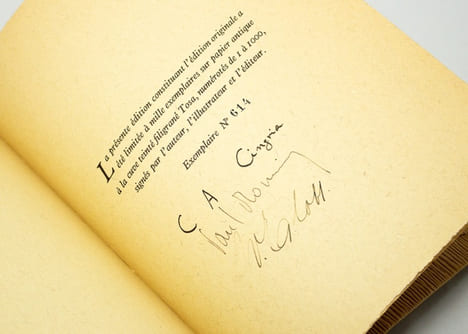 La présente édition constituant l'édition originale a
été limitée à mille exemplaires sur papier antique
à la cuve teinté filigrané Tosa, numérotés de 1 à 1000,
signés par l'auteur, l'illustrateur et l'éditeur.
Exemplaire N° 614
C A Cingria
Paul Monnier